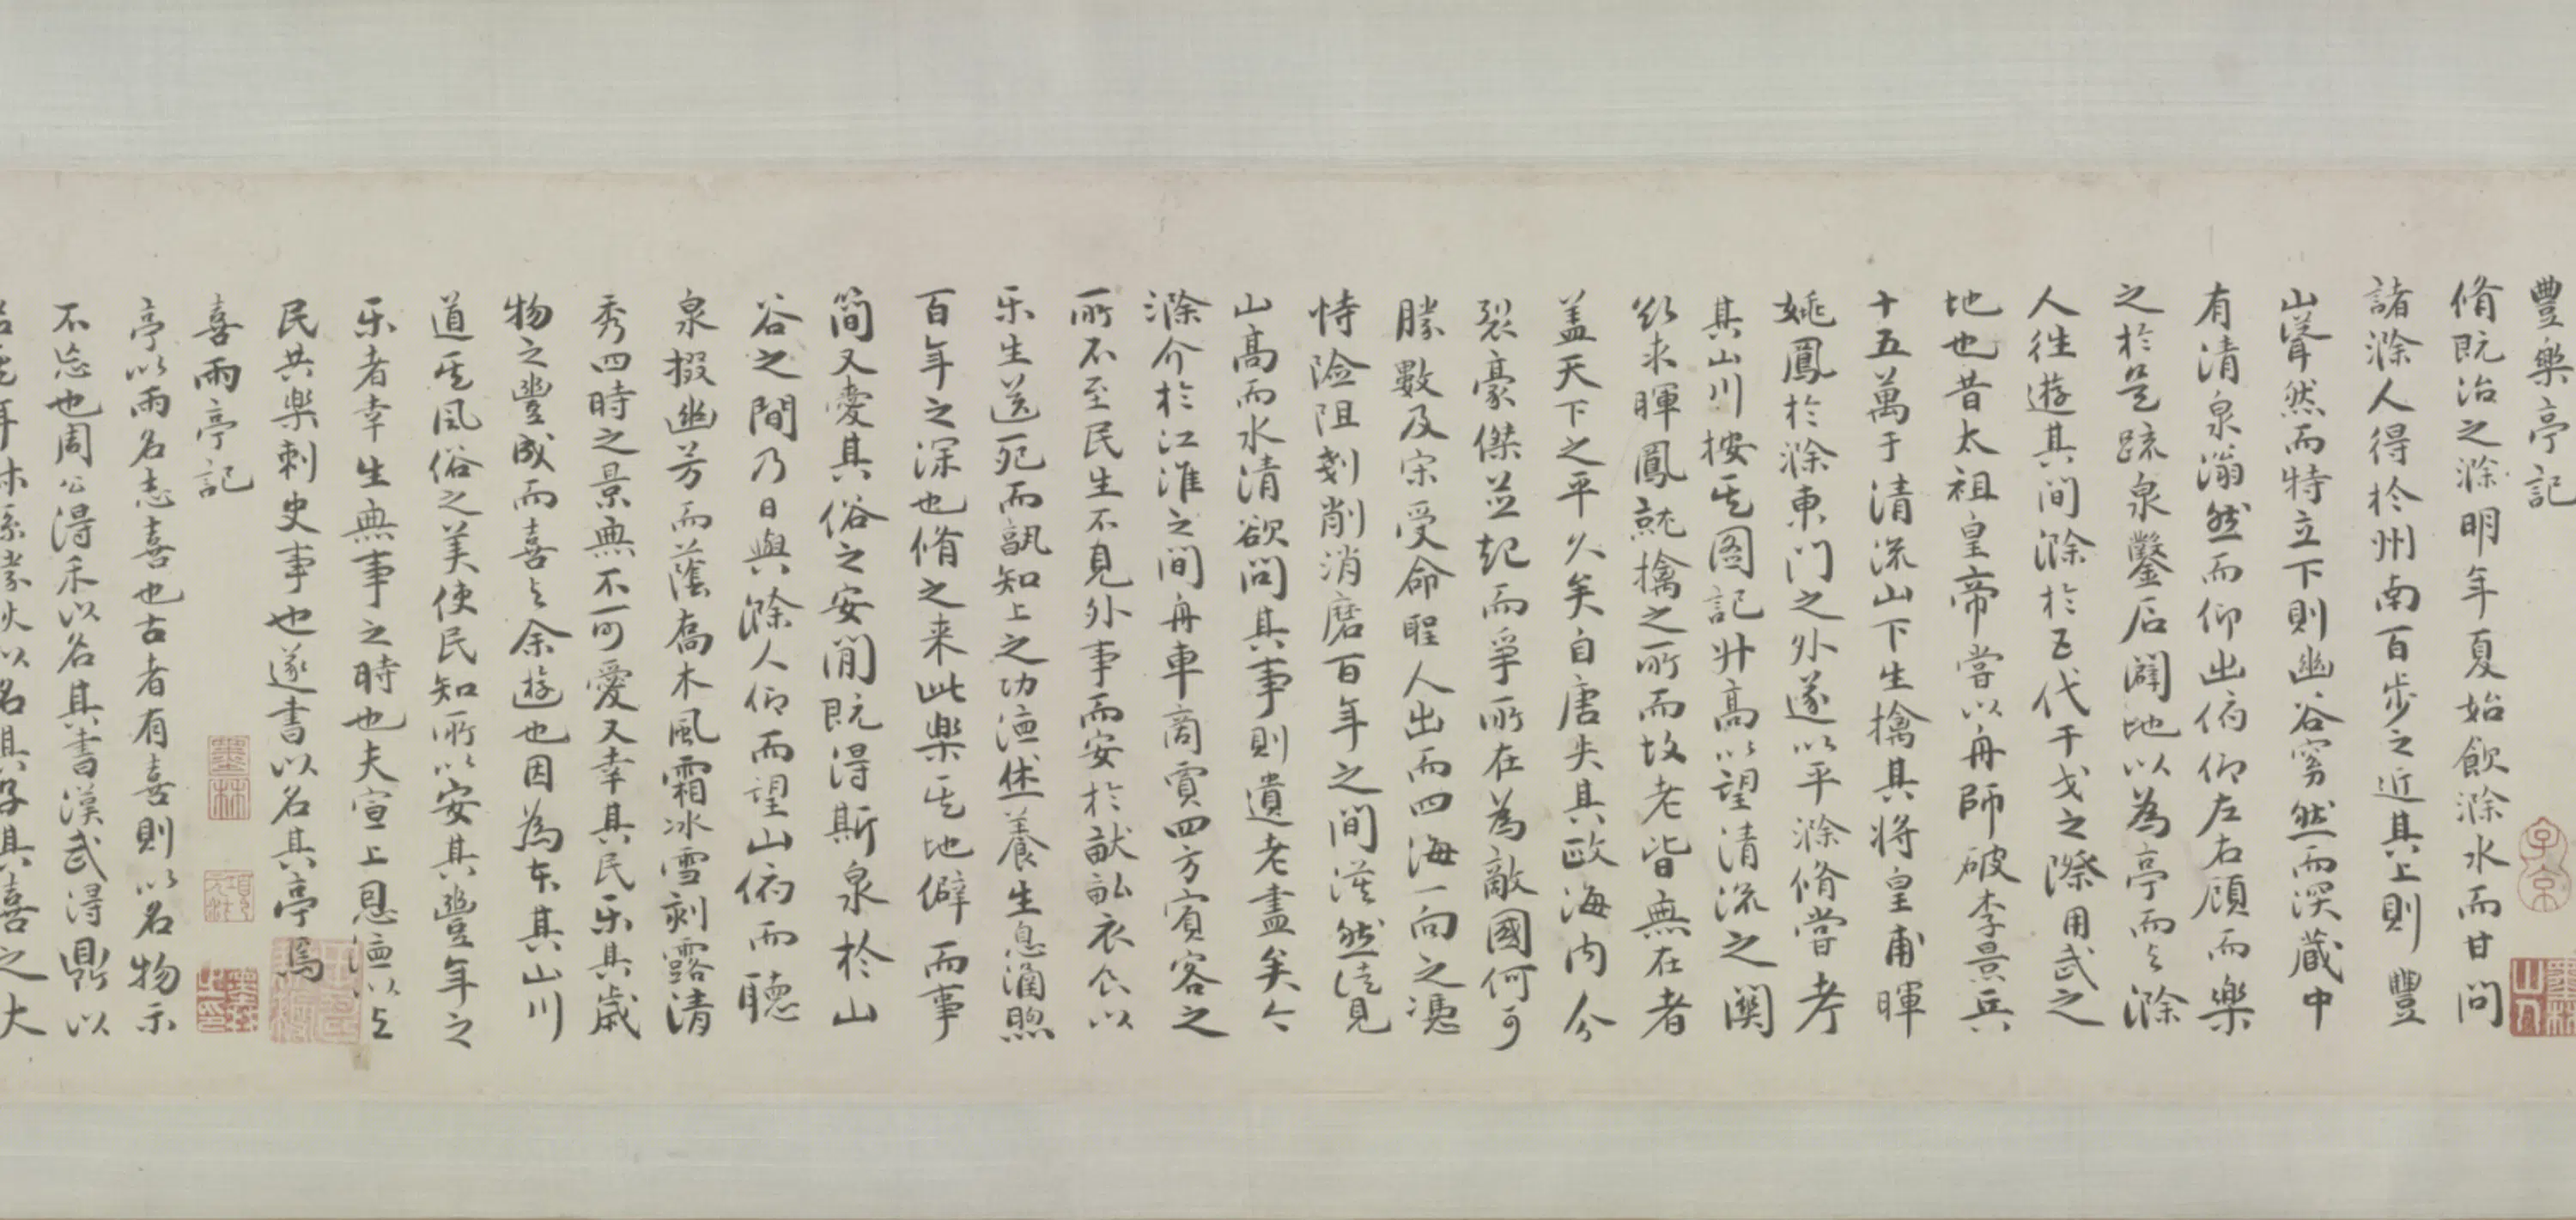 豐樂亭記
脩既治之滁明年夏始飲滁水而甘問
諸滁人得於州南百步之近其上則豐
山聳然而特立下則幽谷窈然而深藏中
有清泉滃然而仰出俯仰左右顧而樂
之於是疏泉鑿石闢地以為亭而与滁
人往遊其間滁於五代干戈之際用武之
地也昔太祖皇帝嘗以舟師破李景兵
十五萬于清流山下生擒其將皇甫暉
姚鳳於滁東门之外遂以平滁脩嘗考
其山川按其圖記升高以望清流之關
欲求暉鳳就擒之所而故老皆無在者
盖天下之平久矣自唐失其政海内分
裂豪傑並起而爭所在為敵國何可
勝數及宋受命聖人出而四海一向之憑
恃險阻剗削消磨百年之間漠然徒見
山高而水清欲問其事則遺老盡矣今
滁介於江淮之間舟車商賈四方賓客之
所不至民生不見外事而安於畎畝衣食以
乐生送死而孰知上之功德休養生息涵煦
百年之深也脩之来此樂其地僻而事
簡又愛其俗之安閒既得斯泉於山
谷之間乃日與滁人仰而望山俯而聽
泉掇幽芳而蔭喬木風霜冰雪刻露清
秀四時之景無不可愛又幸其民乐其歲
物之豐成而喜与余遊也因為本其山川
道其風俗之美使民知所以安其豐年之
乐者幸生無事之時也夫宣上恩德以与
民共樂刺史事也遂書以名其亭焉
喜雨亭記
亭以雨名志喜也古者有喜則以名物示
不忘也周公得禾以名其書漢武得鼎以
名其子其喜之大
子京
墨林山人
墨林
項元汴